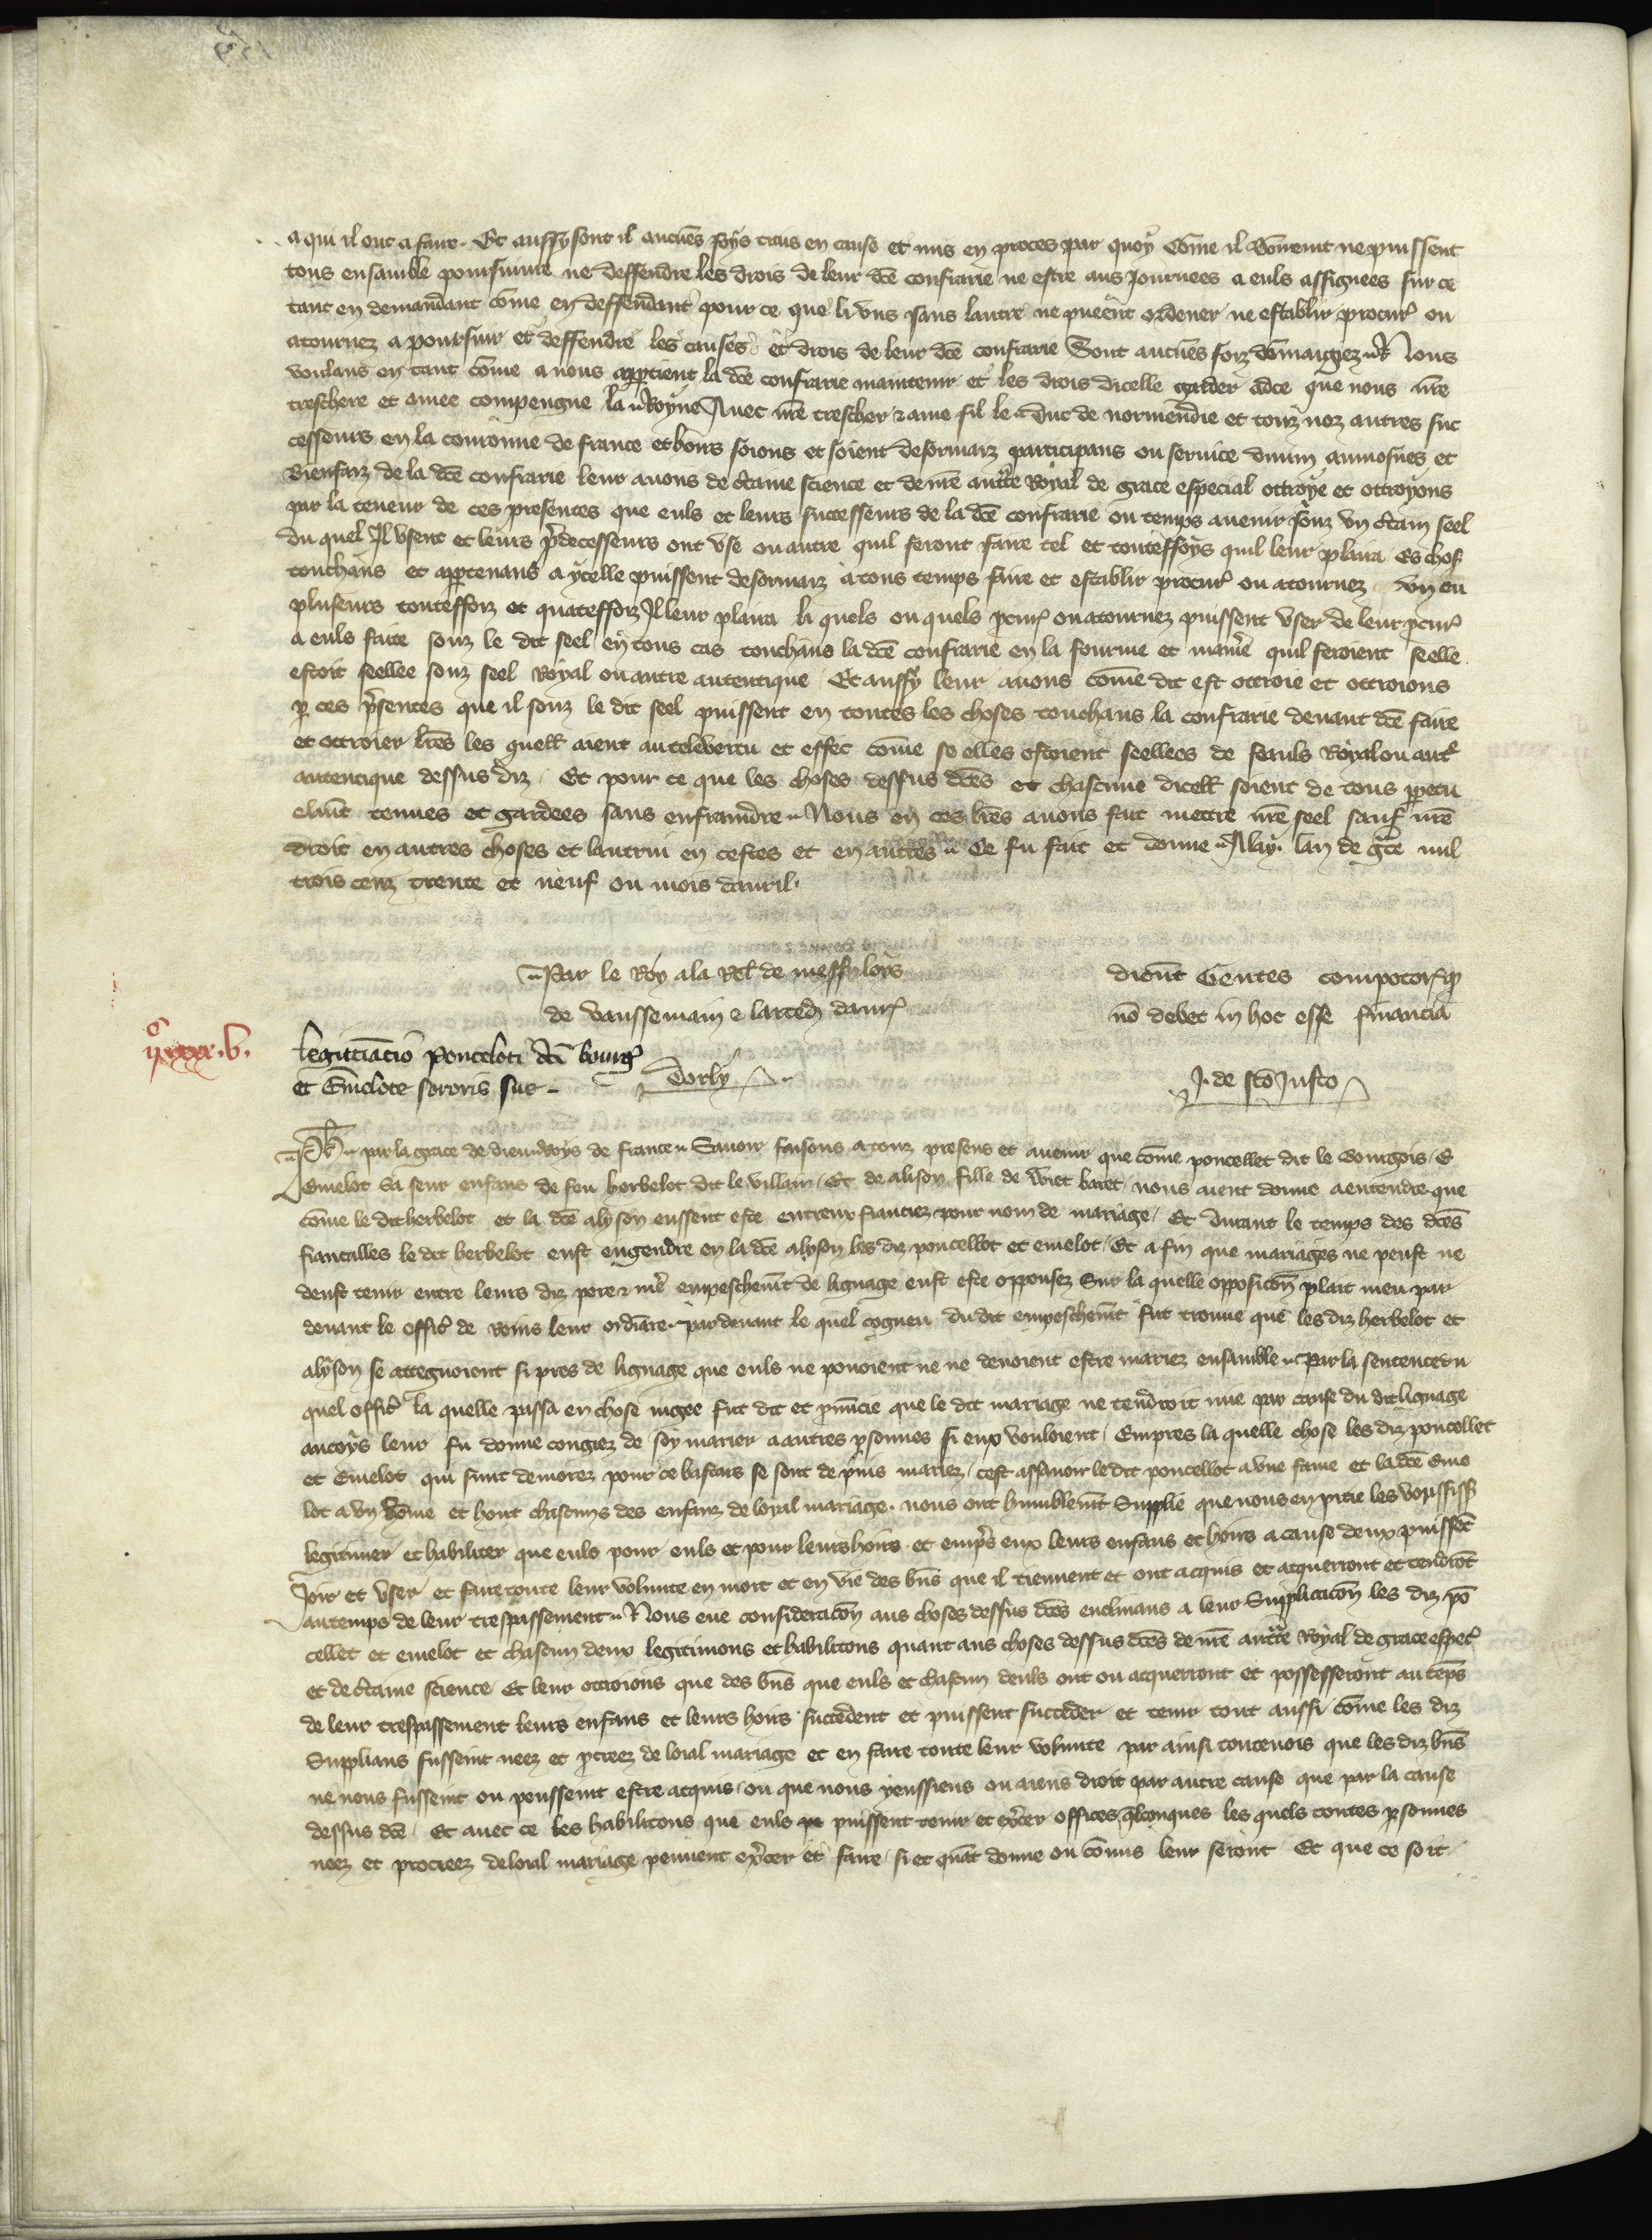 a qui il ont a faire. Et aussy sont il aucu̅es foys trais en cause et mis en proces par quoy co̅me il co̅uenist ne puissent
tous ensamble poursuiure ne deffendre les drois de leur dc̅e confrarie ne estre aus Journees a euls assignees sur ce
tant en demandant co̅me en deffendant pour ce que li vns sans lautre ne pueent ordener ne establir procur̕ ou
atournez a poursuir et deffendre les causes et drois de leur dc̅e confrarie Sont aucu̅es foiz do̅maigez Nous
voulans en tant co̅me a nous app̱tient la dc̅e confrarie maintenir et les drois dicelle garder adce que nous nr̅e
treschere et amee compengne la Royne Auec nr̅e trescher & ame fil le Duc de normendie et touz noz autres suc
cesseurs en la couronne de france et hoirs soions et soient desormaiz participans ou seruice diuin aumosnes et
Bienfaiz de la dc̅e confrarie leur auons de c̕taine science et de nr̅e auct̕te Royal de grace especial ottroye et ottroyons
par la teneur de ces presentes que euls et leurs successeurs de la dc̅e confrarie ou temps auenir souz vn c̕tain seel
du quel Il vsent et leurs p̕decesseurs ont vse ou autre quil feront faire tel et toutesfoys quil leur plaira Es chos̕
touchans et app̱tenans a ycelle puissent desormaiz a tous temps faire et establir procur̕ ou atournez vn ou
pluseurs toutesfoiz et quatesfoiz Il leur plaira li quels ou quels p̱cur̕ ou atournez puissent vser de leur p̱cur̕
a euls faite souz le dit seel en tous cas touchans la dc̅e confrarie en la fourme et mani̕e quil feroient se elle
estoit seellee souz seel Royal ou autre autentique Et aussy leur auons co̅me dit est ottroie et ottroions
p̱ ces p̕sentes que il souz le dit seel puissent en toutes les choses touchans la confrarie deuant dc̅e faire
et ottroier lr̅es les quell̕ aient autele vertu et effec co̅me se elles estoient seellees de seauls Royal ou aut̕
autentique dessus diz Et pour ce que les choses dessus dc̅es et chascune dicell̕ soient de tous p̱petu
elme̅t tenues et gardees sans enfraindre Nous en ces lr̅es auons fait mettre nr̅e seel sauf nr̅e
droit en autres choses et lautrui en cestes et en autres Ce fu fait et donne Alay. lan de g̕ce mil
trois cenz trente et neuf ou mois dauril.
Par le Roy a la Rel̕ de mess̕ loys
de vaussemain & larced̕ dauir̕
dicu̅t Gentes compotor̕ q̱
no̅ debet in hoc esse financia
ijᶜ xxxx. v.
legittiacio Ponceloti dc̅i bourg̕
et Emelote sororis sue
Dorly
J. de sc̅o Justo
Ph̅ par la grace de dieu Roys de france Sauoir faisons a touz presens et auenir que co̅me poncellet dit le Bourgois E
Emelot sa seur enfans de feu herbelot dit le villain Et de alison fille de Wiet baret nous aient donne a entendre que
co̅me le dit herbelot et la dc̅e alyson eussent este entreux fianciez pour nom de mariage Et durant le temps des dc̅es
fiancailles le dit herbelot eust engendre en la dc̅e alyson les diz poncellot et emelot Et afin que mariages ne peust ne
deust tenir entre leurs diz pere & me̕ empeschem̅t de lignage eust este opposez Sur la quelle opposico̅n plait meu par
deuant le offic̕ de Rains leur ordi̅are par deuant le quel cogneu du dit empeschem̅t fut trouue que les diz herbelot et
alyson se attegnoient si pres de lignage que euls ne pouoient ne ne deuoient estre mariez ensamble Par la sentence du
quel offic̕ la quelle passa en chose iugee fut dit et p̱nu̅cie que le dit mariage ne tendroit mie par cause du dit lignage
ancoys leur fu donne congiez de soy marier a autres p̱sonnes si eux vouloient Empres la quelle chose les diz poncellet
et Emelot qui sunt demorez pour ce bastars se sont depuis mariez cest assauoir le dit poncellot a vne fame et la dc̅e Eme
lot a vn ho̅me et hont chascuns des enfanz de loyal mariage. nous ont humblem̅t Supplie que nous en pitie les vousissi̅s
legitimer et habiliter que euls pour euls et pour leurs hoirs et emp̕s eux leurs enfans et hoirs a cause deux puisse̅t
Joir et vser et faire toute leur volunte en mort et en vie des bn̅s que il tiennent et ont acquis et acquerront et tendro̅t
au temps de leur trespassement Nous eue consideraco̅n aus choses dessus dc̅es enclinans a leur Supplicaco̅n les diz po̅
cellet et emelot et chascun deux legitimons et habilitons quant aus choses dessus dc̅es de nr̅e auct̕te Royal de grace espec̕
et de c̕taine science Et leur ottroions que des bn̅s que euls et chascun deuls ont ou acquerront et possesseront au te̅ps
de leur trespassement leurs enfans et leurs hoirs succedent et puissent succeder et tenir tout aussi co̅me les diz
Supplians fussent neez et p̱creez de loial mariage et en faire toute leur volunte par ainsi toutenois que les diz bn̅s
ne nous fussent ou peussent estre acquis ou que nous yeussiens ou aiens droit par autre cause que par la cause
dessus dc̅e Et auec ce les habilitons que euls puissent tenir et exc̕cer offices q̅lconques les quels toutes p̱sonnes
neez et procreez de loial mariage peuuent exc̕cer et faire si et qua̅t donne ou co̅mis leur seront Et que ce soit